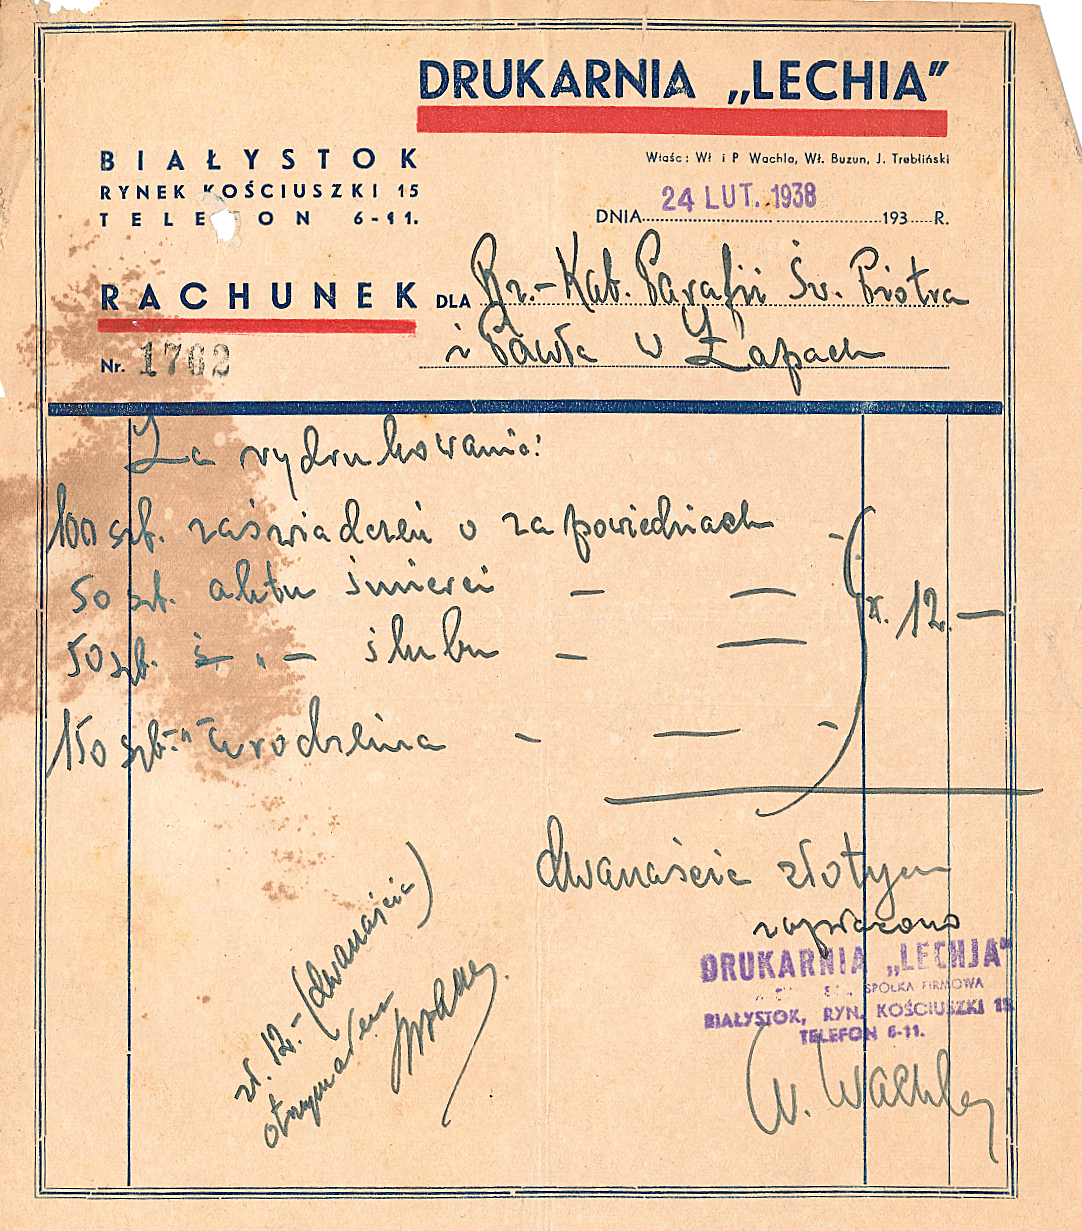 DRUKARNIA „LECHIA"
BIAŁYSTOK
RYNEK KOŚCIUSZKI 15
TELEFON 6-11.
Właśc: Wł i P Wachla, Wł. Buzun, J. Trebliński
DNIA 24 LUT. 1938 193 R.
RACHUNEK DLA Rz.-Kat. Parafii Św. Piotra
i Pawła w Łapach
Nr. 1762
Za wydrukowanie:
100 szt. zaświadczeń o zapowiedniach —
50 szt. aktu śmierci — —
50 szt. ś — „ — ślubu — —
zł. 12.—
150 szt. — „ — urodzenia — — —
dwanaście złotych
zapłacono
zł. 12.— (dwanaście)
otrzymałem
DRUKARNIA „LECHJA"
SPÓŁKA FIRMOWA
BIAŁYSTOK, RYN. KOŚCIUSZKI 15
TELEFON 6-11.
W. Wachla